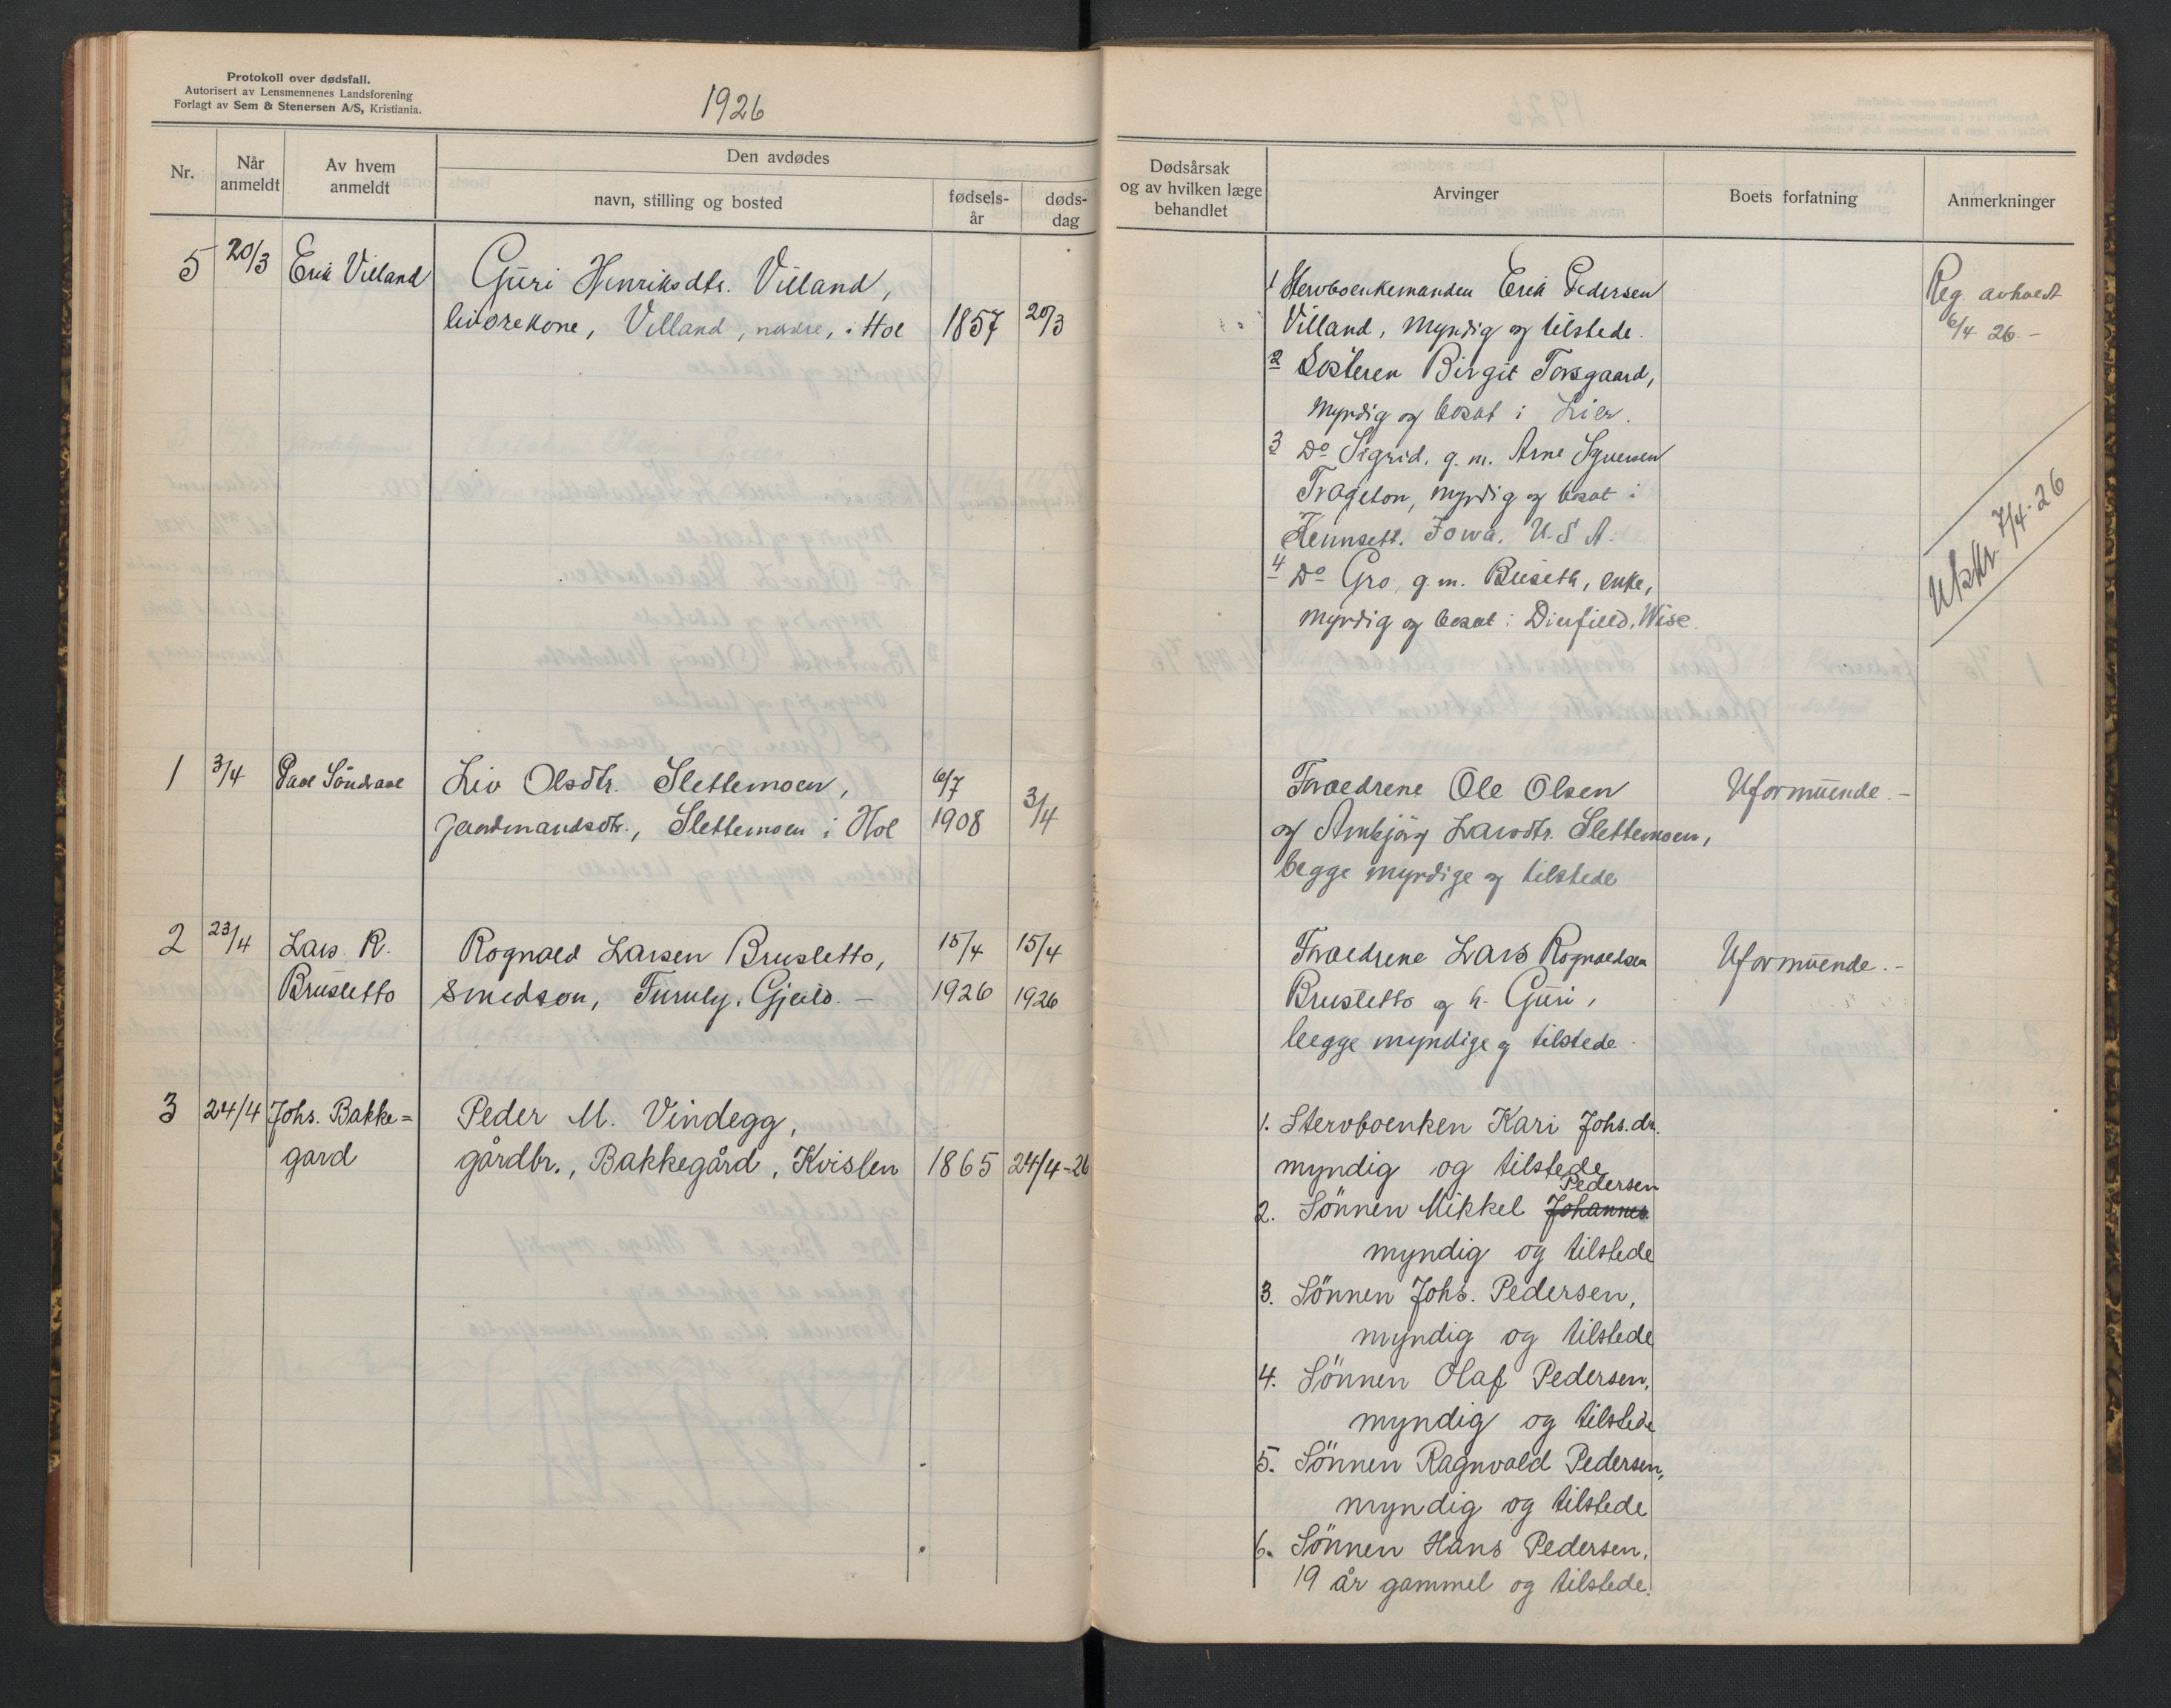 Protokoll over dødsfall.
Autorisert av Lensmennenes Landsforening
Forlagt av Sem & Stenersen A/S, Kristiania.
1926
Nr.
Når anmeldt
Av hvem anmeldt
Den avdødes
navn, stilling og bosted
fødsels-
år
døds-
dag
5 20/3 Erik Villand Guri Henriksdtr. Villand,
livørekone, Villand, nedre, i Hol 1857 20/3
1 3/4 Liv Olsdtr. Slettemoen, 6/7
jordmandsdtr., Slettemoen i Hol 1908 3/4
2 23/4 Lars R. Rognald Larsen Brusletto, 15/4 15/4
Brusletto smedsøn, Furuly, Gjeilo. – 1926 1926
3 24/4 Johs. Bakke= Peder M. Vindegg,
gard gårdbr., Bakkegård, Kvislen 1865 24/4-26
Dødsårsak
og av hvilken læge
behandlet
Arvinger
Boets forfatning
Anmerkninger
1 Stervboenkemanden Erik Pedersen
Villand, myndig og tilstede.
2 Søsteren Birgit Torsgaard,
myndig og bosat i Lier.
3 Do Sigrid, g. m. Arne
myndig og bosat i
Iowa. U.S.A.
4 Do Gro, g. m. enke,
myndig og bosat i
Reg. avholdt
6/4 26.–
Utskr. 7/4-26
Forældrene Ole Olsen
og Larsdtr. Slettemoen,
begge myndige og tilstede
Uformuende.–
Forældrene Lars Rognaldsen
Brusletto og h. Guri,
begge myndige og tilstede.
Uformuende.–
1. Stervboenken Kari Johs.dr.
myndig og tilstede
Pedersen
2. Sönnen Mikkel Johannes.
myndig og tilstede
3. Sönnen Johs. Pedersen,
myndig og tilstede
4. Sönnen Olaf Pedersen,
myndig og tilstede
5. Sönnen Ragnvald Pedersen,
myndig og tilstede
6. Sönnen Hans Pedersen,
19 år gammel og tilstede.